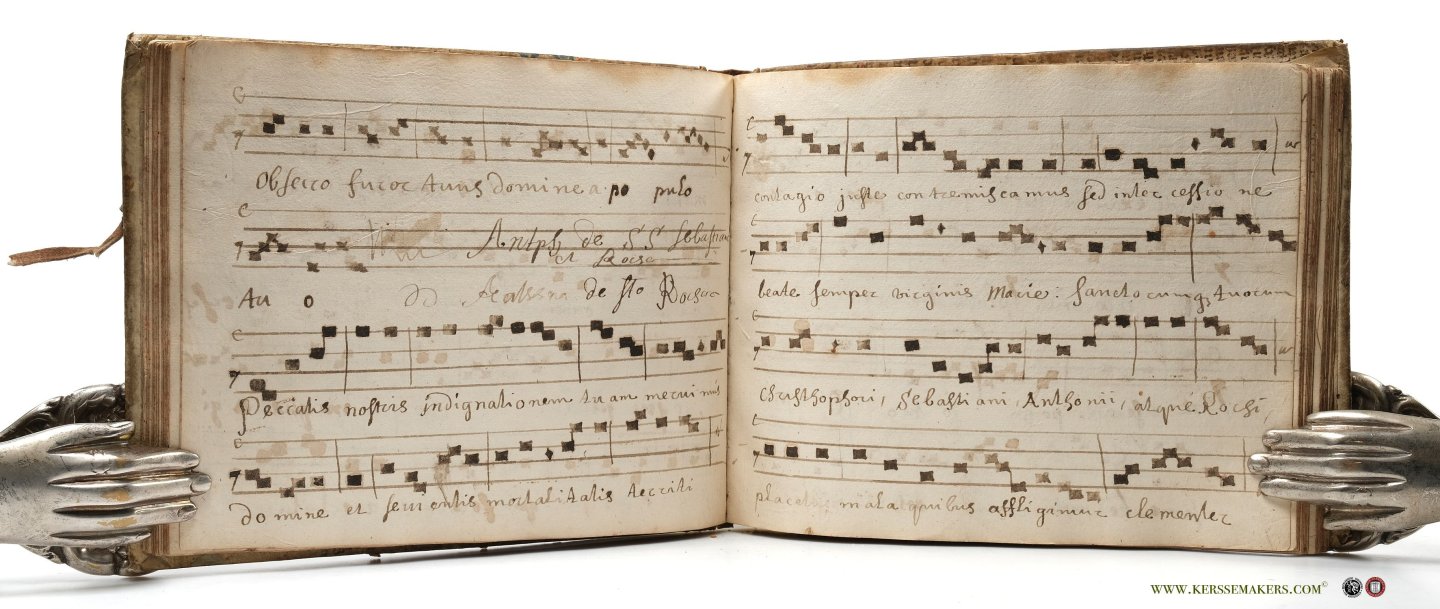 Obsecro furor tuus domine a po pulo
Antph de SS Sebastiani
et Rocho
Au o de sto Rocho
Peccatis nostris indignationem tuam merui mus
do mine et sevi entis mortalitatis territi
contagio juste contremiscamus sed inter cessio ne
beate semper virginis Marie: sanctorumq tuorum
Christhophori, Sebasti ani, Anthonii, atque Rochi,
placetur mala quibus affligimur clementer
WWW.KERSSEMAKERS.COM©